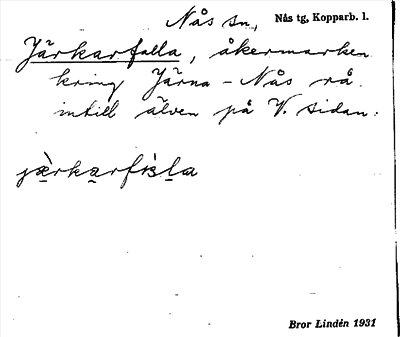 Nås sn, Nås tg, Kopparb. l.
Järkarfalla, åkermarken
kring Järna-Nås rå
intill älven på V. sidan.
Bror Lindén 1931